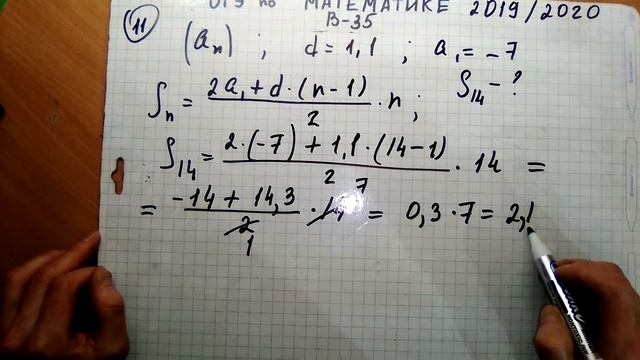 ОГЭ по МАТЕМАТИКЕ 2019/2020
В-35
11 (aₙ) ; d = 1,1 ; a₁ = -7
Sₙ = (2a₁ + d · (n-1))/2 · n ; S₁₄ - ?
S₁₄ = (2·(-7) + 1,1·(14-1))/2 · 14 =
= (-14 + 14,3)/2 1 · 14 7 = 0,3 · 7 = 2,1